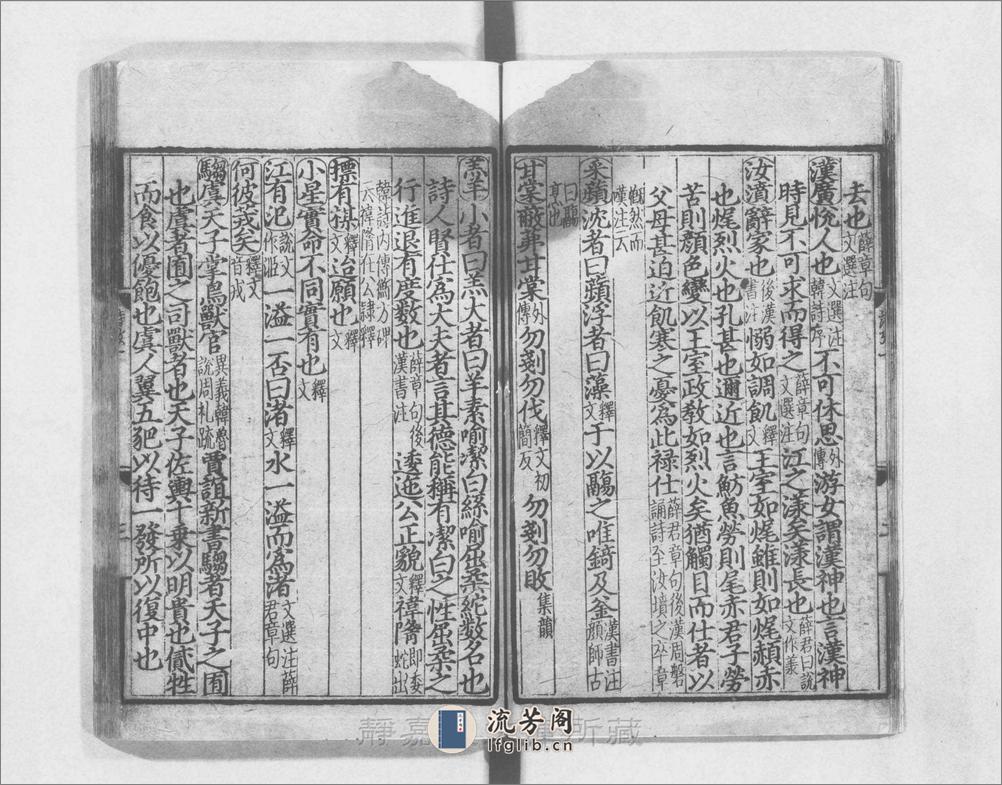 去也薛章句文選注
漢廣悅人也文選注韓詩序不可休思外傳游女謂漢神也言漢神
時見不可求而得之薛章句文選注江之漾矣漾長也薛君曰說文作羕
汝濆辭家也後漢書注惄如調飢釋文王室如烓雖則如烓頳赤
也烓烈火也孔甚也邇近也言魴魚勞則尾赤君子勞
苦則顏色變以王室政教如烈火矣猶觸目而仕者以
父母甚迫近飢寒之憂為此祿仕薛君章句後漢周磐誦詩至汝墳之卒章
慨然而嘆注云
采蘋沈者曰蘋浮者曰藻釋文于以鬺之唯錡及釜漢書注顏師古
曰鬺烹也
甘棠蔽茀甘棠外傳勿剗勿伐釋文初簡反勿剗勿敗集韻
羔羊小者曰羔大者曰羊素喻潔白絲喻屈柔紽数名也
詩人賢仕為大夫者言其德能稱有潔白之性屈柔之
行進退有度数也薛章句後漢書注逶迤公正貌釋文禕隋即委蛇出
韓詩内傳衡方碑云禕隋在公隸釋
摽有楳釋文迨願也釋文
小星實命不同實有也釋文
江有汜說文作洍一溢一否曰渚釋文水一溢而為渚文選注薛君章句
何彼茙矣釋文音戎
騶虞天子掌鳥獸官異義韓魯說周礼疏賈誼新書騶者天子之囿
也虞者囿之司獸者也天子佐輿十乗以明貴也貳牲
而食以優飽也虞人翼五豝以待一發所以復中也
靜嘉
所藏
流芳阁
lfglib.cn